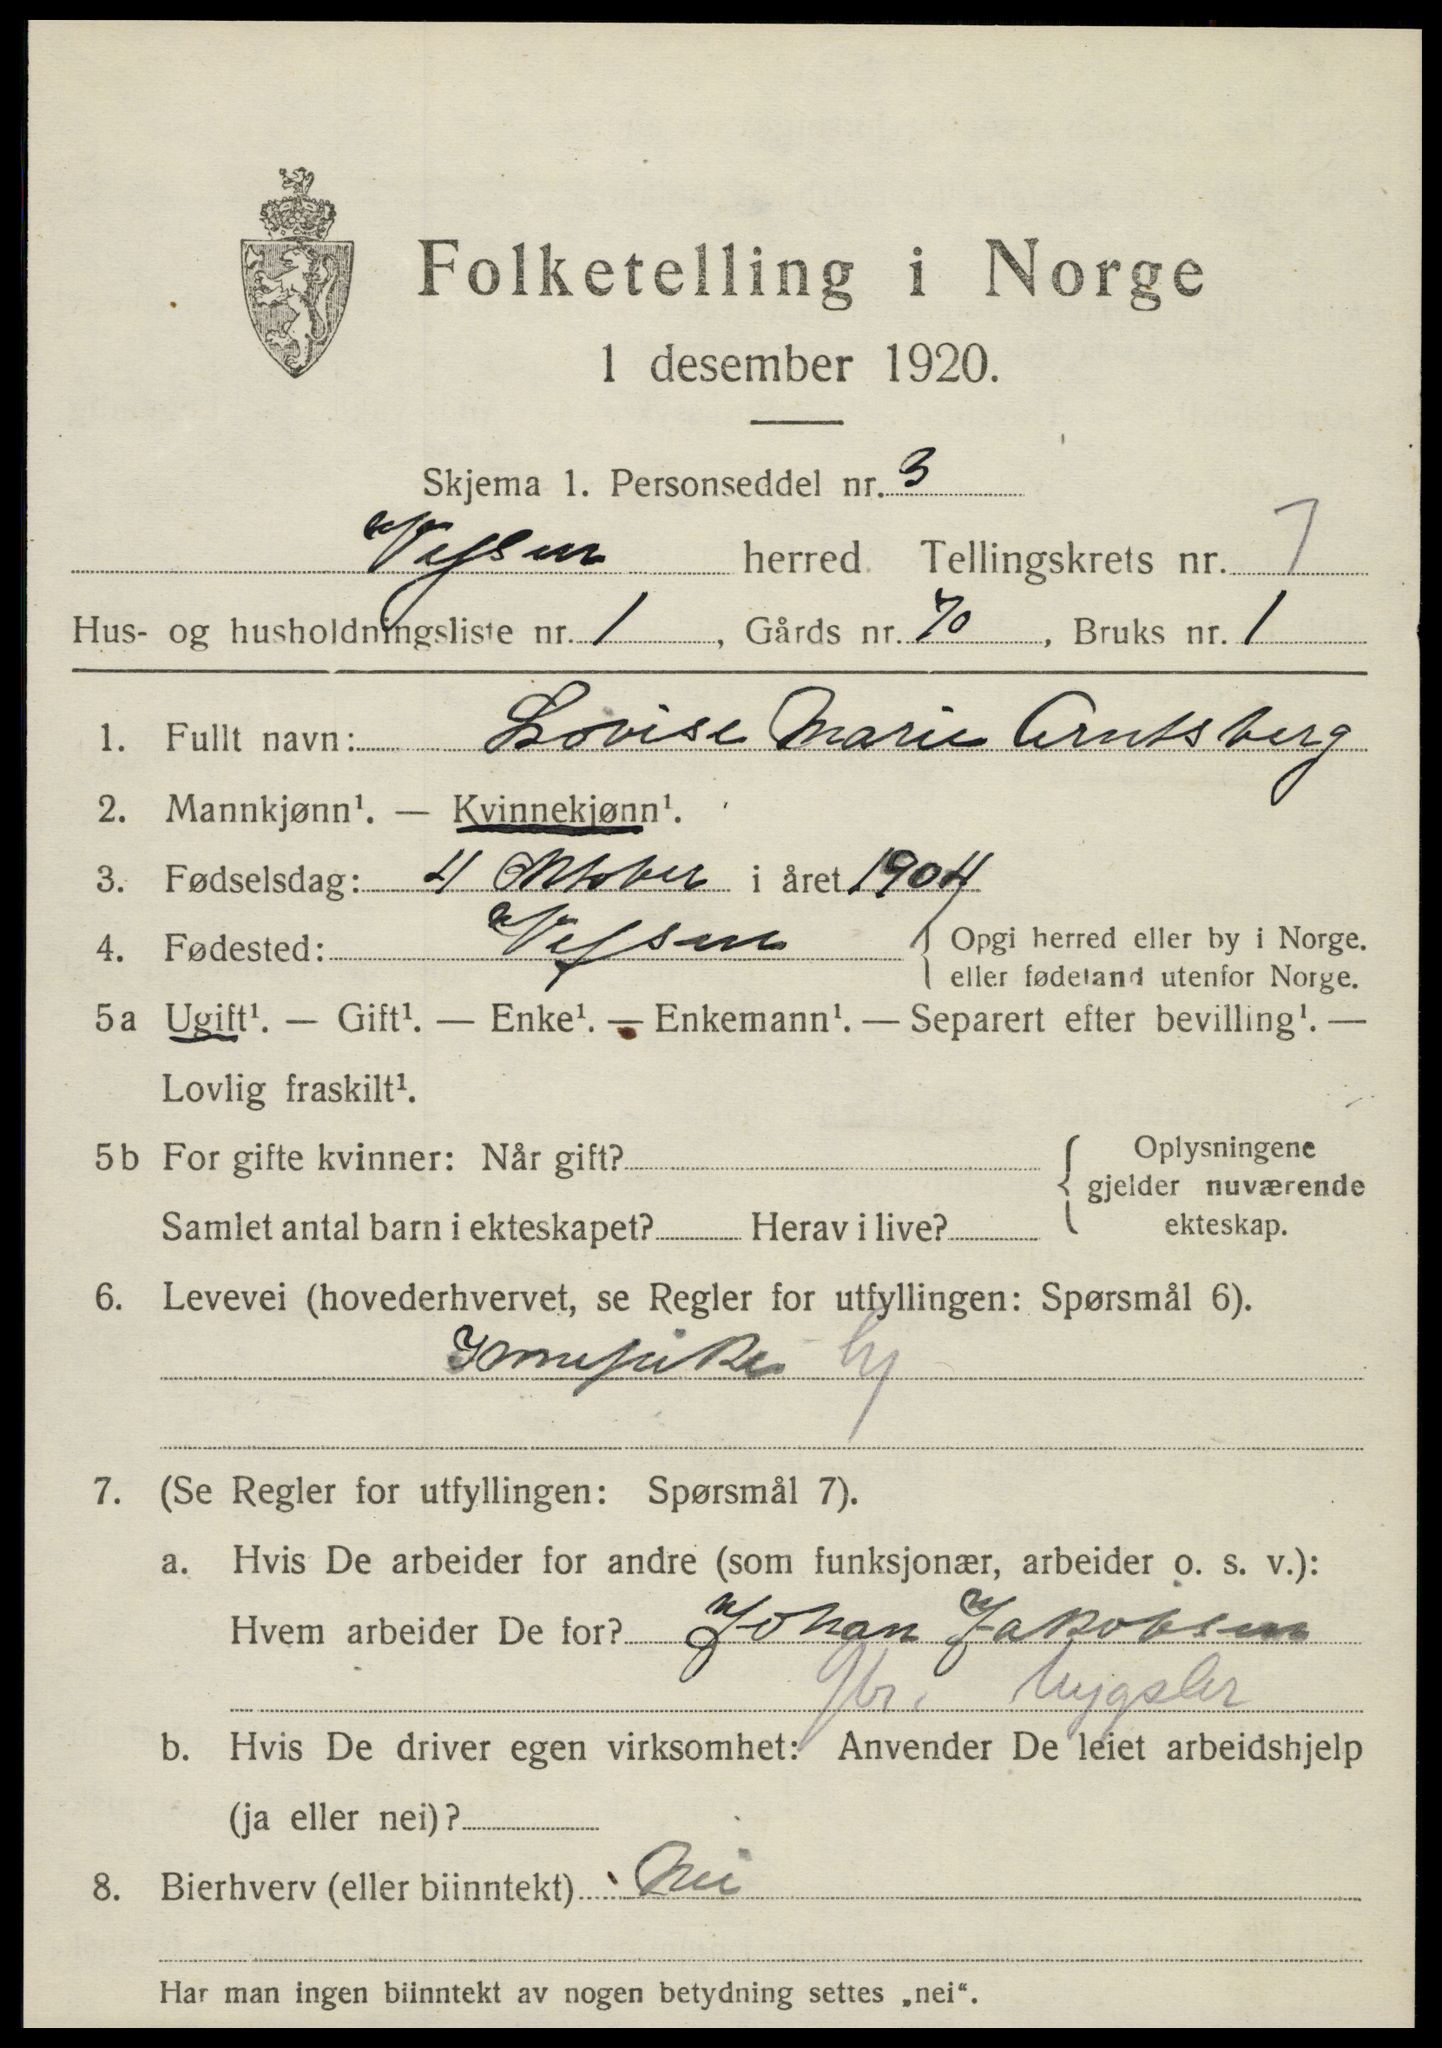 Folketelling i Norge
1 desember 1920.
Skjema 1. Personseddel nr. 3
Vefsen herred. Tellingskrets nr. 7
Hus- og husholdningsliste nr. 1, Gårds nr. 70, Bruks nr. 1
1. Fullt navn: Lovise Marie Arntsberg
2. Mannkjønn¹. — Kvinnekjønn¹.
3. Fødselsdag: 4 Oktober i året 1904
4. Fødested: Vefsen { Opgi herred eller by i Norge.
eller fødeland utenfor Norge.
5a Ugift¹. — Gift¹. — Enke¹. — Enkemann¹. — Separert efter bevilling¹. —
Lovlig fraskilt¹.
5b For gifte kvinner: Når gift? { Oplysningene
gjelder nuværende
Samlet antal barn i ekteskapet? Herav i live? ekteskap.
6. Levevei (hovederhvervet, se Regler for utfyllingen: Spørsmål 6).
Innepike hj
7. (Se Regler for utfyllingen: Spørsmål 7).
a. Hvis De arbeider for andre (som funksjonær, arbeider o. s. v.):
Hvem arbeider De for? Johan Jakobsen
gbr.
b. Hvis De driver egen virksomhet: Anvender De leiet arbeidshjelp
(ja eller nei)?
8. Bierhverv (eller biinntekt) Nei
Har man ingen biinntekt av nogen betydning settes „nei“.